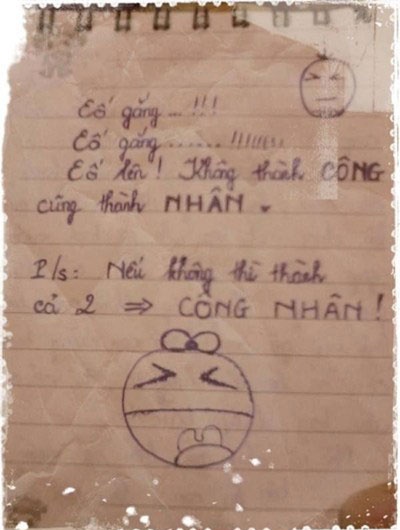 Cố gắng ... !!!
Cố gắng ....... !!!!!!!!
Cố lên! Không thành CÔNG
cũng thành NHÂN.
P/s: Nếu không thì thành
cả 2 => CÔNG NHÂN!